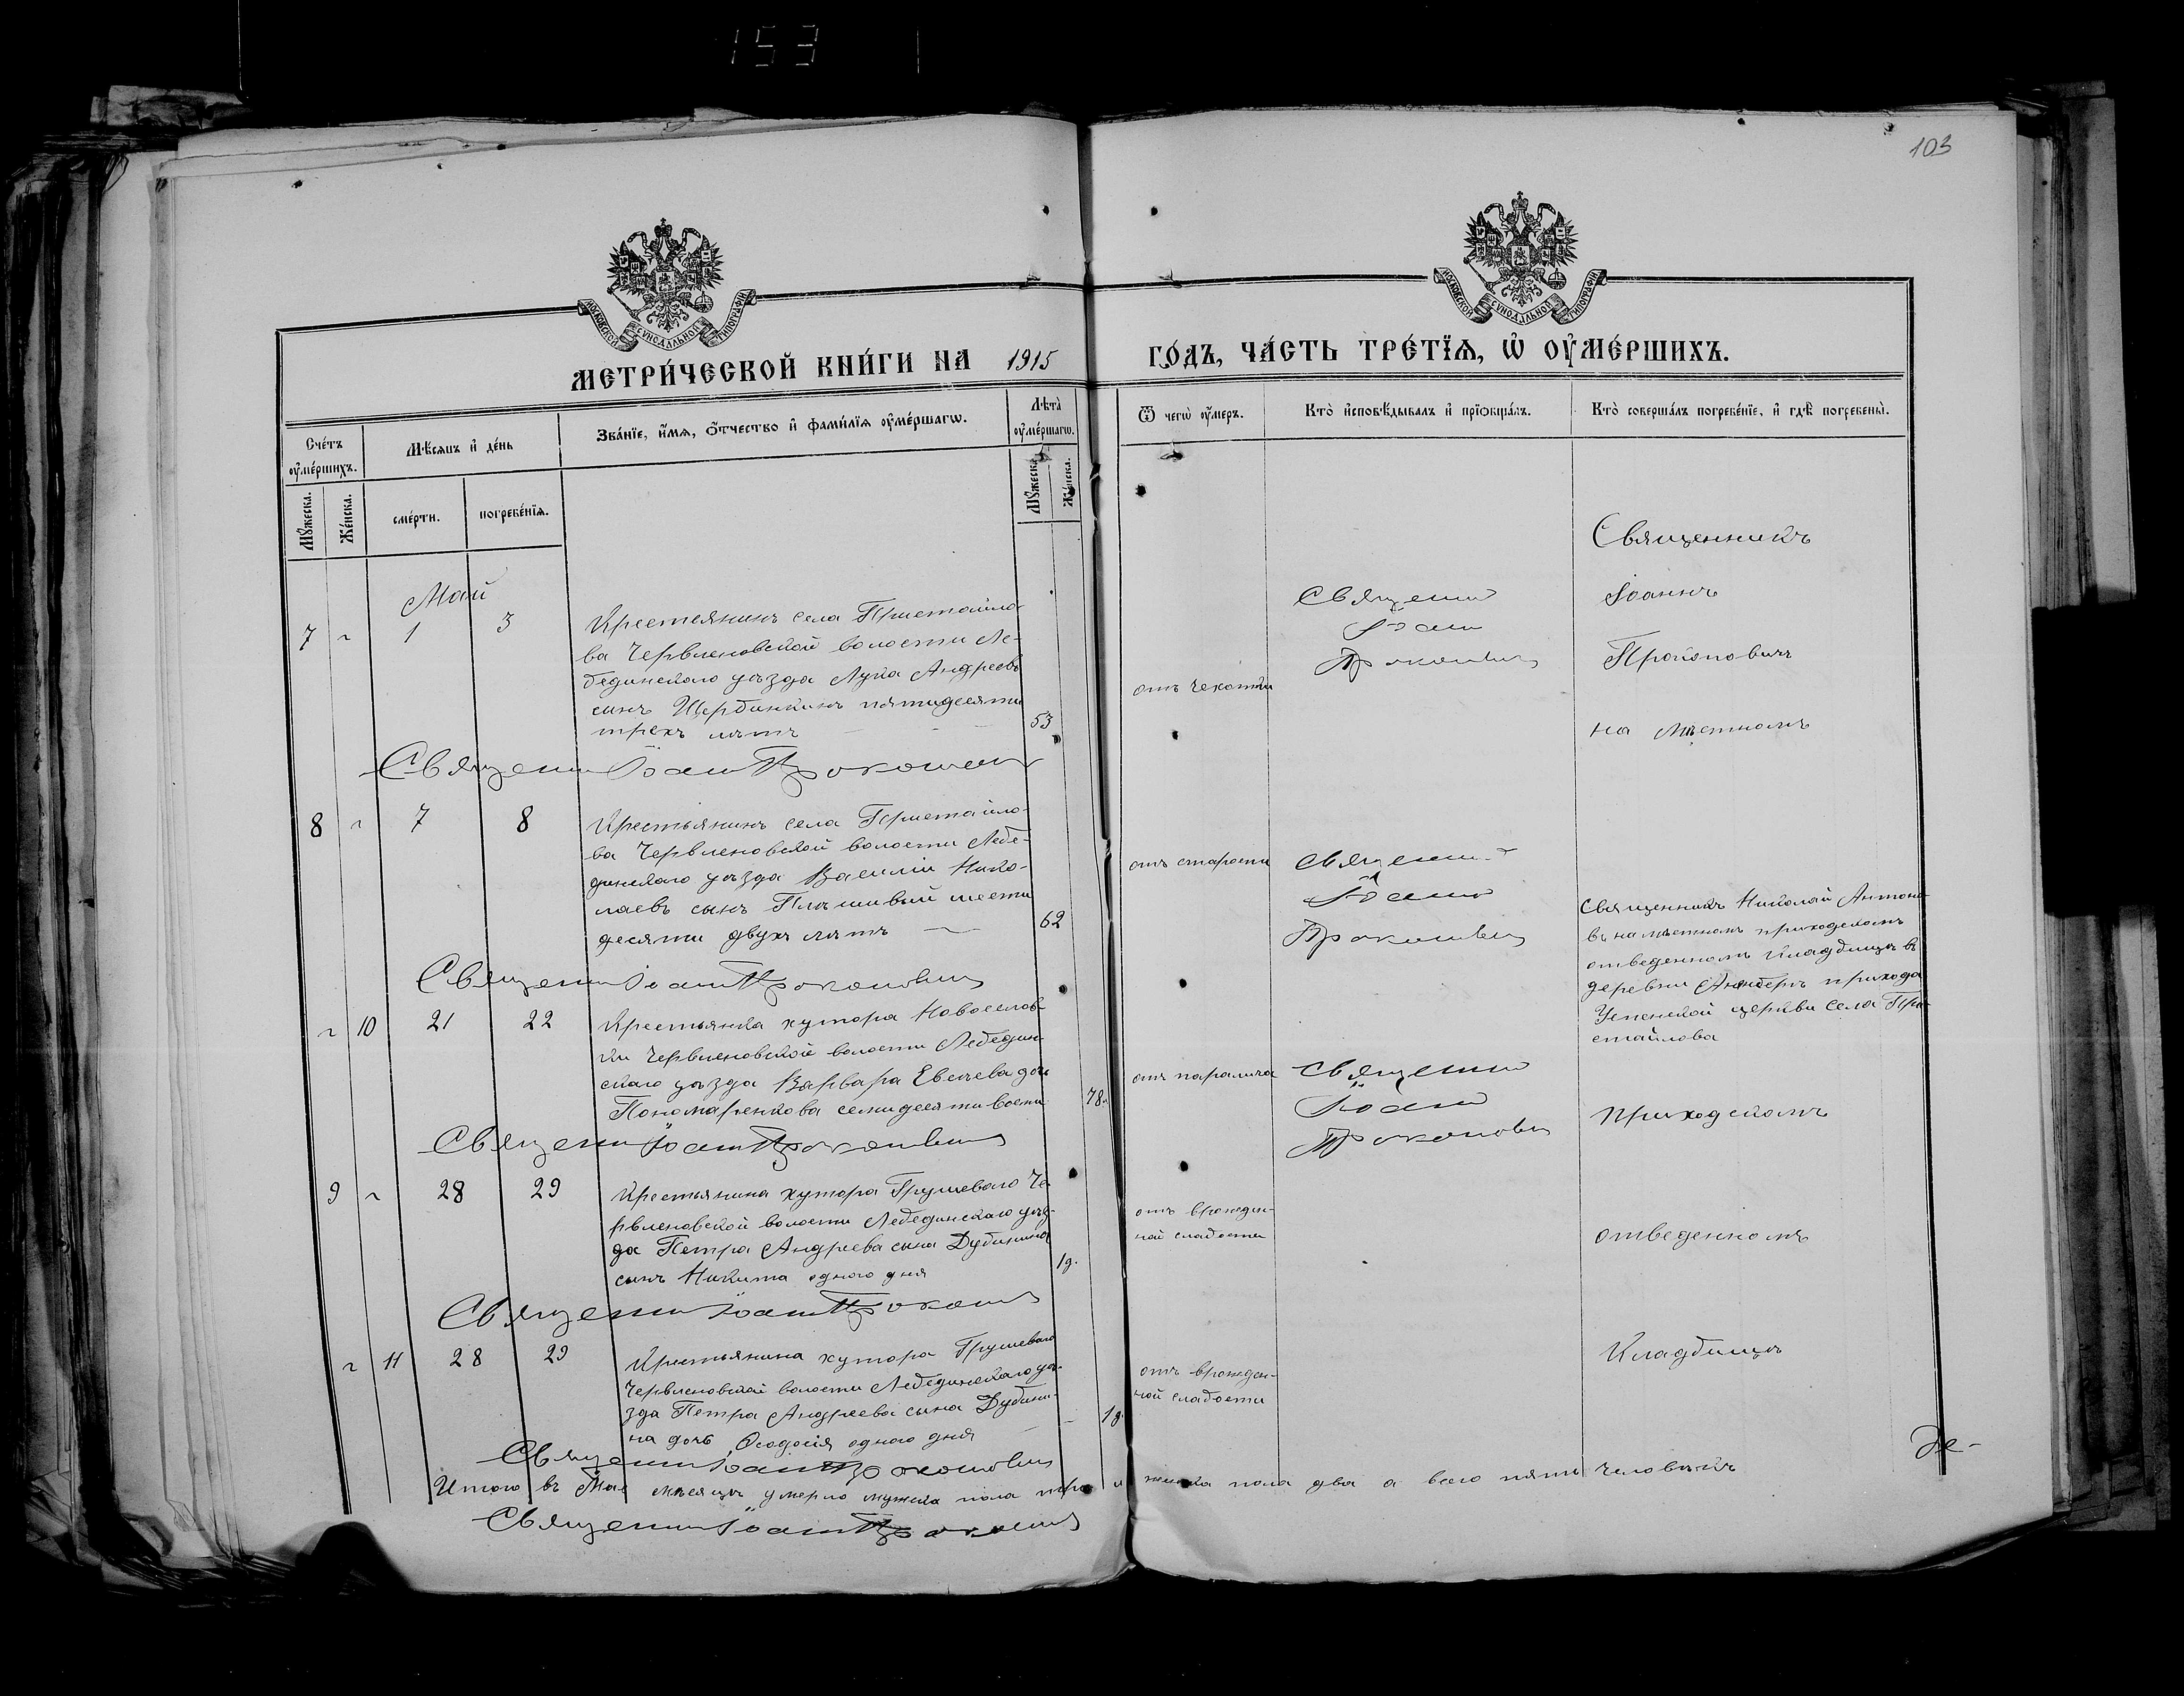 153
103
МОСКОВСКОЙ СѴНОДАЛЬНОЙ ТИПОГРАФІИ
МОСКОВСКОЙ СѴНОДАЛЬНОЙ ТИПОГРАФІИ
МЕТРИ́ЧЕСКОЙ КНИ́ГИ НА 1915 ГО́ДЪ, ЧА́СТЬ ТРЕ́ТЇѦ, Ѡ҆ ОУ҆МЕ́РШИХЪ.
Сче́тъ оу҆ме́ршихъ.
Мѣ́сѧцъ и҆ де́нь
Зва́нїе, и҆́мѧ, ѻ҆́тчество и҆ фами́лїѧ оу҆ме́ршагѡ.
Лѣта̀ оу҆ме́ршагѡ.
Ѿ чегѡ̀ оу҆́меръ.
Кто̀ и҆сповѣ́дывалъ и҆ прїѡбща́лъ.
Кто̀ соверша́лъ погребе́нїе, и҆ гдѣ̀ погребены̀.
Мꙋ́жеска.
Же́нска.
сме́рти.
погребе́нїѧ.
Мꙋ́жеска.
Же́нска.
Май
7 1 3
Крестьянинъ села Пристайло-
ва Червленовской волости Ле-
бединскаго уѣзда Лука Андреевъ
сынъ Щербинкинъ пятидесяти
трехъ лѣтъ
53
отъ чахотки
Священник
Іоанн
Прокопович
Священникъ
Іоаннъ
Прокоповичъ
на мѣстномъ
Священник Іоанн Прокопович
8 7 8
Крестьянинъ села Пристайло-
ва Червленовской волости Лебе-
динскаго уѣзда Василій Нико-
лаевъ сынъ Плѣшивый шести
десяти двухъ лѣтъ
62
отъ старости
Священник
Іоанн
Прокопович
Священник Іоанн Прокопович
Священникъ Николай Антоно-
въ на мѣстномъ приходскомъ
отведенномъ кладбищѣ въ
деревни прихода
Успенской церкви села При-
стайлова
10 21 22
Крестьянка хутора Новоселов-
ки Червленовской волости Лебедин-
скаго уѣзда Варвара дочь
Пономаренкова семидесяти восьми
78
отъ паралича
Священник
Іоанн
Прокопович
приходскомъ
Священник Іоанн Прокопович
9 28 29
Крестьянина хутора Грушеваго Че-
рвленовской волости Лебединскаго уѣз-
да Петра Андреева сына Дубинина
сынъ Никита одного дня
1д.
отъ врожден-
ной слабости
отведенномъ
Священник Іоанн Прокопович
11 28 29
Крестьянина хутора Грушеваго
Червленовской волости Лебединскаго уѣ-
зда Петра Андреева сына Дубини-
на дочь Ѳеодосія одного дня
1д.
отъ врожден-
ной слабости
Кладбищѣ
Священник Іоанн Прокопович
Итого въ Маѣ мѣсяцѣ умерло мужска пола три и женска пола два а всего пять человѣкъ
Священник Іоанн Прокопович